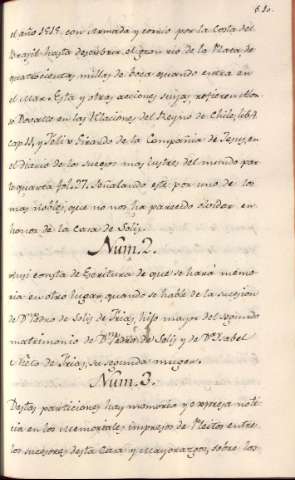 610.
el año 1515. con Armada y corrió por la Costa del
Brasil hasta descubrir el gran rio de la Plata, de
quatrocientas millas de boca quando entra en
el Mar. Esta y otras acciones suyas, refieren
Dovalle en las Relaciones del Reyno de Chile, lib. 4
cap. 11, y Felix Girardo de la Compañia de Jesus, en
el diario de los sucesos mas ilustres del mundo par
te quarta, fol. 27. Señalando este por uno de los
mas nobles, que no nos ha parecido olvidar en
honor de la Casa de Solis.
Num. 2.
Assi consta de Escritura de que se hará memo
ria en otro lugar, quando se hable de la sucesion
de Dn. Pedro de Solis de Frias, hijo mayor del segundo
matrimonio de Dn. Pedro de Solis y de Da. Isabel
Nieto de Frias, su segunda muger.
Num. 3.
Destas particiones hay memoria y expresa noti
cia en los memoriales impresos de Pleitos entre
los sucesores desta Casa y Mayorazgo, sobre los